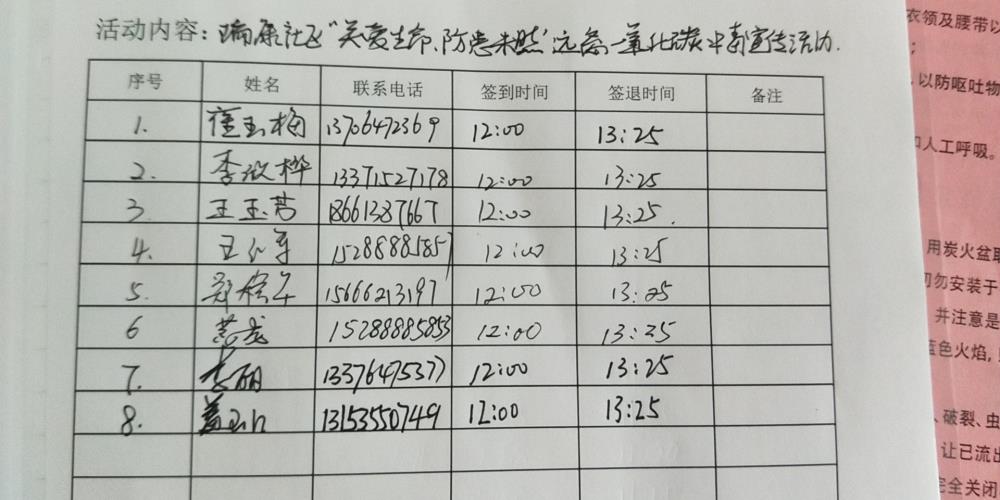 活动内容：瑞康社区“关爱生命、防患未然”远离一氧化碳中毒宣传活动.
序号 姓名 联系电话 签到时间 签退时间 备注
1. 崔玉梅 13706472369 12:00 13:25
2. 李欣桦 13371527178 12:00 13:25
3. 王玉芳 18661387667 12:00 13:25.
4. 王 15288885857 12:00 13:25
5. 郑 15666213197 12:00 13:25
6 黄龙 15288885853 12:00 13:25
7. 李丽 13376475377 12:00 13:25
8. 盖 13153550749 12:00 13:25
衣领及腰带以
；
，以防呕吐物
人工呼吸。
用炭火盆取
切勿安装于
并注意是
蓝色火焰，
、破裂、虫
让已流出
完全关闭